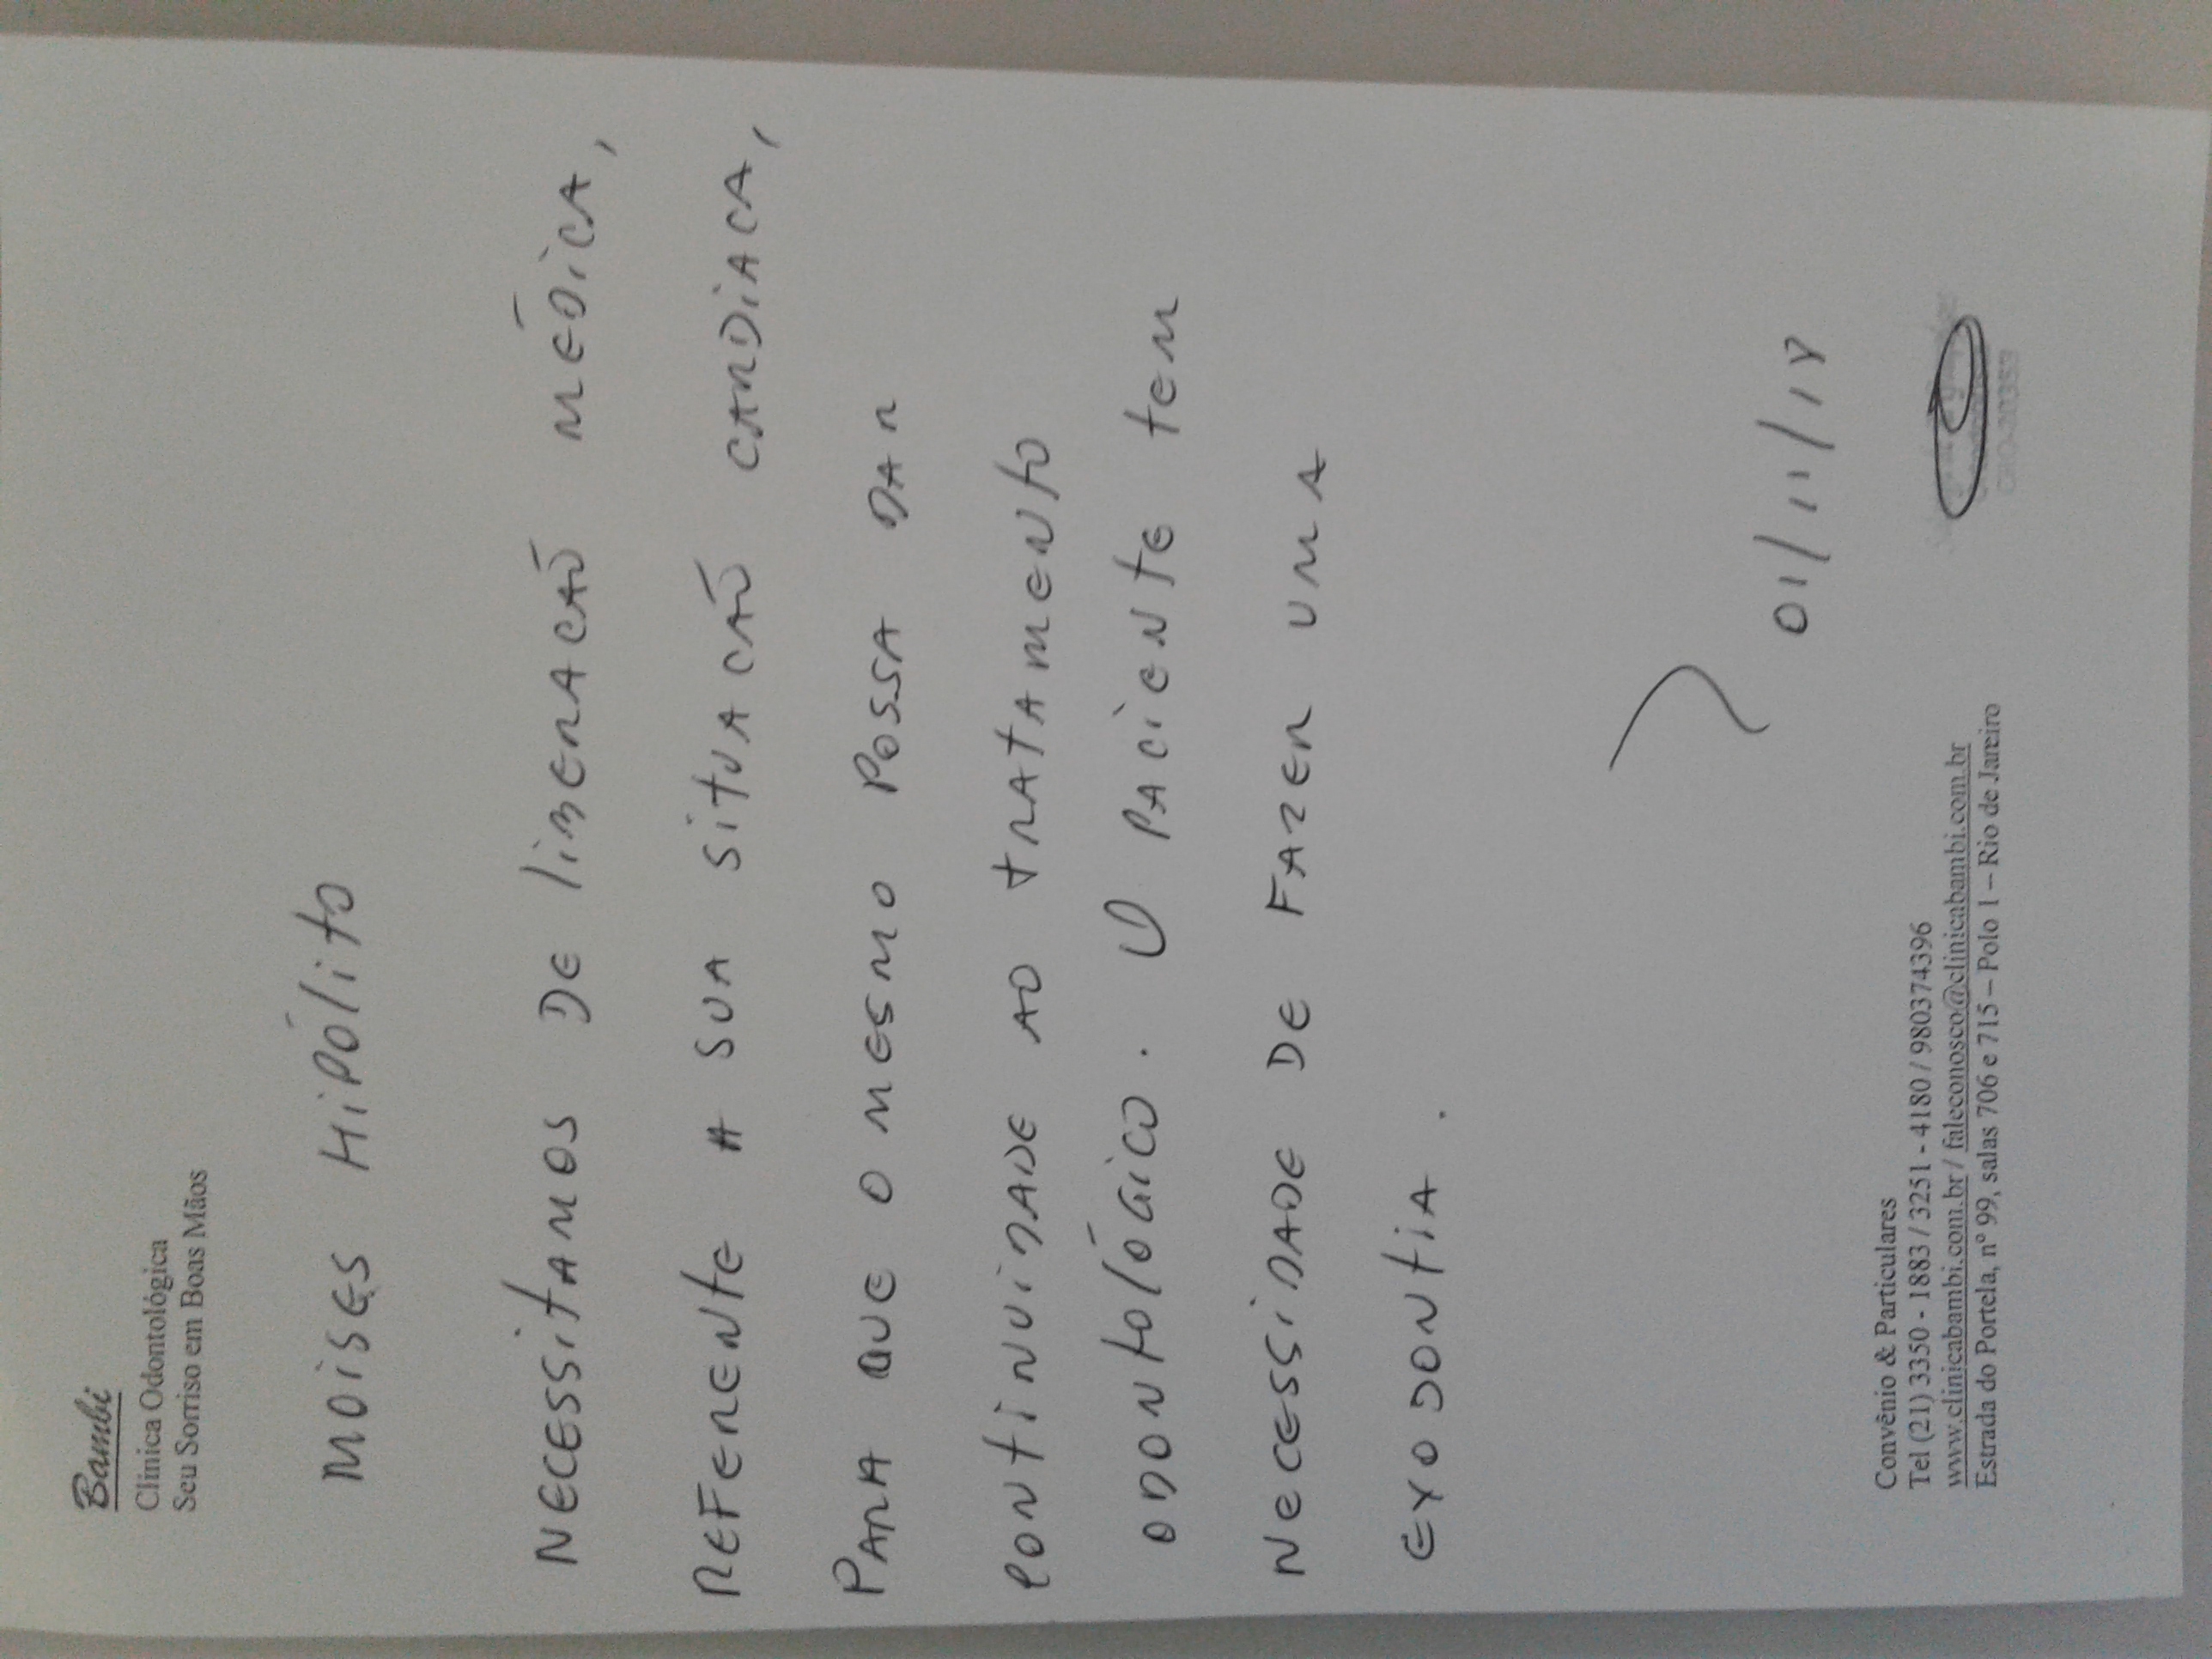 Bambi
Clínica Odontológica
Seu Sorriso em Boas Mãos
MOISES HIPÓLITO
NECESSITAMOS DE LIBERACAÕ MÉDICA,
REFERENTE A SUA SITUACAÕ CARDIACA,
PARA QUE O MESMO POSSA DAR
CONTINUIDADE AO TRATAMENTO
ODONTOLÓGICO. O PACIENTE TEM
NECESSIDADE DE FAZER UMA
EXODONTIA.
01/11/18
Convênio & Particulares
Tel (21) 3350 - 1883 / 3251 - 4180 / 980374396
www.clinicabambi.com.br / faleconosco@clinicabambi.com.br
Estrada do Portela, nº 99, salas 706 e 715 – Polo 1 – Rio de Janeiro